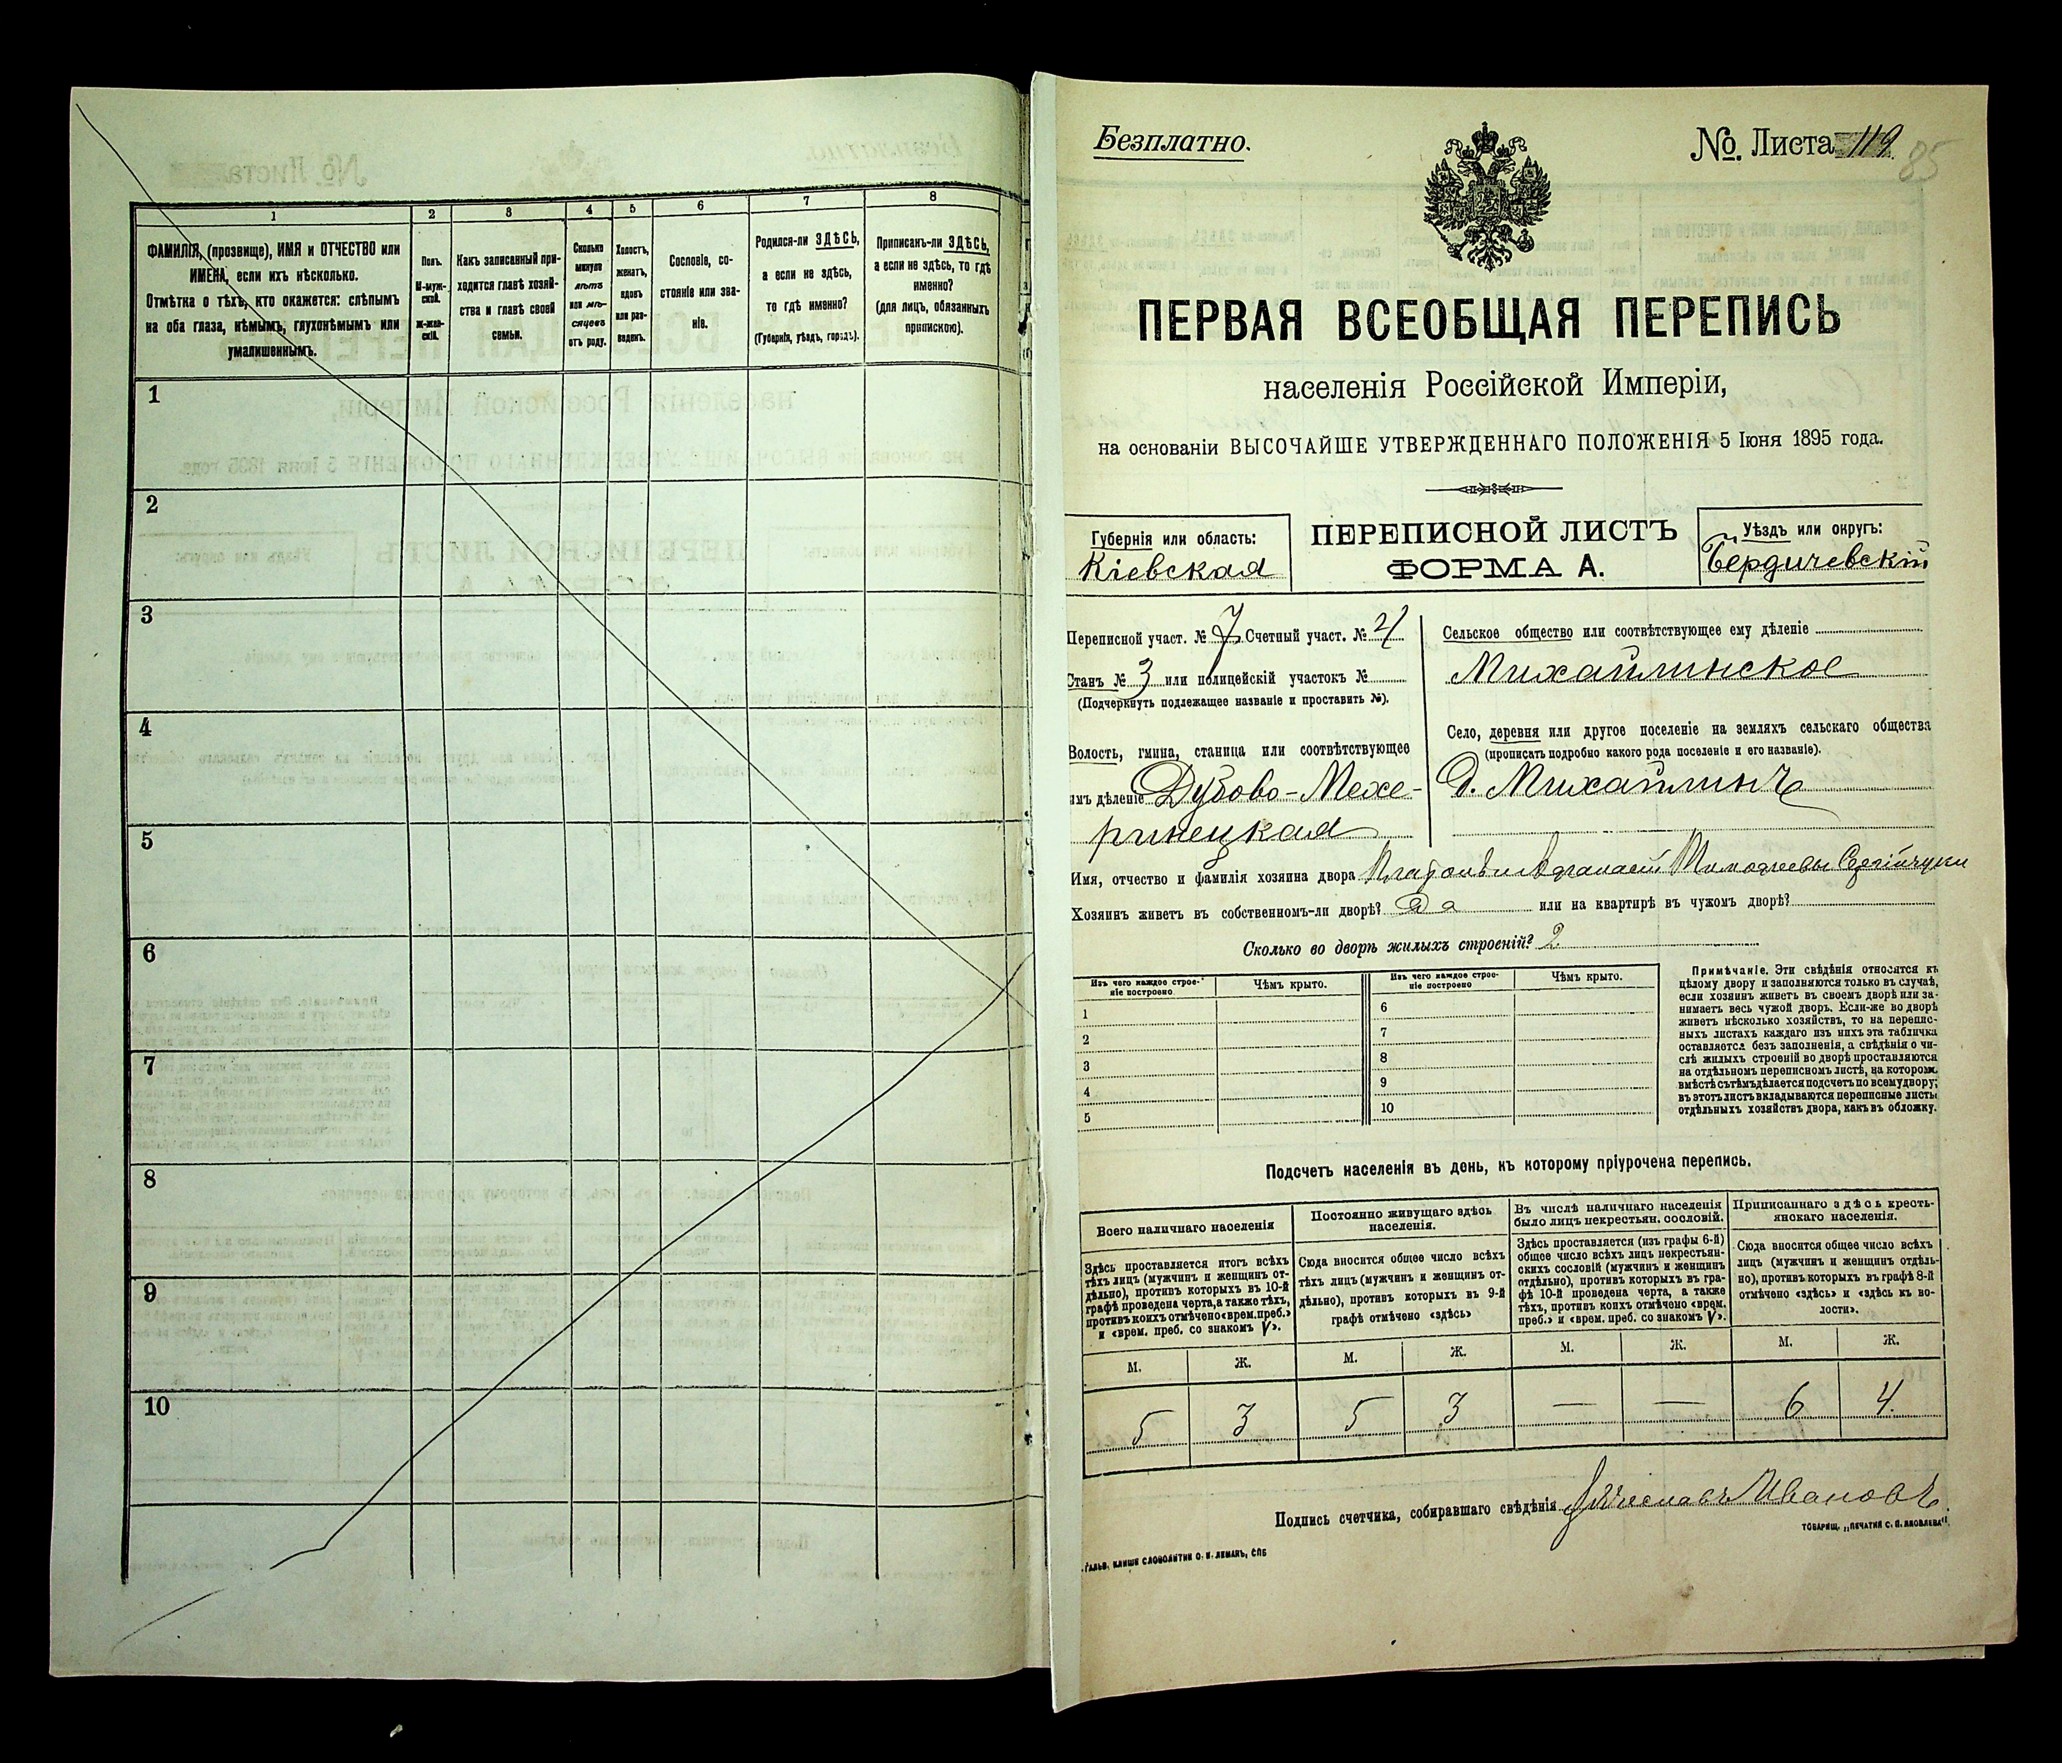 1 2 3 4 5 6 7 8
ФАМИЛІЯ, (прозвище), ИМЯ и ОТЧЕСТВО или
ИМЕНА, если ихъ нѣсколько.
Отмѣтка о тѣхъ, кто окажется: слѣпымъ
на оба глаза, нѣмымъ, глухонѣмымъ или
умалишеннымъ.
Полъ.
М-муж-
ской.
Ж-жен-
скій.
Какъ записанный при-
ходится главѣ хозяй-
ства и главѣ своей
семьи.
Сколько
минуло
лѣтъ
или мѣ-
сяцевъ
отъ роду.
Холостъ,
женатъ,
вдовъ
или раз-
веденъ.
Сословіе, со-
стояніе или зва-
ніе.
Родился-ли ЗДѢСЬ,
а если не здѣсь,
то гдѣ именно?
(Губернія, уѣздъ, городъ).
Приписанъ-ли ЗДѢСЬ,
а если не здѣсь, то гдѣ
именно?
(для лицъ, обязанныхъ
припискою).
1
2
3
4
5
6
7
8
9
10
Безплатно.
№. Листа 119.
85
ПЕРВАЯ ВСЕОБЩАЯ ПЕРЕПИСЬ
населенія Россійской Имперіи,
на основаніи ВЫСОЧАЙШЕ УТВЕРЖДЕННАГО ПОЛОЖЕНІЯ 5 Іюня 1895 года.
Губернія или область:
Кіевская
ПЕРЕПИСНОЙ ЛИСТЪ
ФОРМА А.
Уѣздъ или округъ:
Бердичевскій
Переписной участ. № 7 Счетный участ. № 4
Станъ № 3 или полицейскій участокъ №
(Подчеркнуть подлежащее названіе и проставить №).
Волость, гмина, станица или соотвѣтствующее
имъ дѣленіе Дубово-Мехе-
ринецкая
Сельское общество или соотвѣтствующее ему дѣленіе
Михайлинское
Село, деревня или другое поселеніе на земляхъ сельскаго общества
(прописать подробно какого рода поселеніе и его названіе).
д. Михайлинъ
Имя, отчество и фамилія хозяина двора
Хозяинъ живетъ въ собственномъ-ли дворѣ? Да или на квартирѣ въ чужомъ дворѣ?
Сколько во дворѣ жилыхъ строеній? 2
Изъ чего каждое строе-
ніе построено
Чѣмъ крыто.
Изъ чего каждое строе-
ніе построено
Чѣмъ крыто.
1 6
2 7
3 8
4 9
5 10
Примѣчаніе. Эти свѣдѣнія относятся къ
цѣлому двору и заполняются только въ случаѣ,
если хозяинъ живетъ въ своемъ дворѣ или за-
нимаетъ весь чужой дворъ. Если-же во дворѣ
живетъ нѣсколько хозяйствъ, то на перепис-
ныхъ листахъ каждаго изъ нихъ эта табличка
оставляется безъ заполненія, а свѣдѣнія о чи-
слѣ жилыхъ строеній во дворѣ проставляются
на отдѣльномъ переписномъ листѣ, на которомъ
вмѣстѣ съ тѣмъ дѣлается подсчетъ по всему двору;
въ этотъ листъ вкладываются переписные листы
отдѣльныхъ хозяйствъ двора, какъ въ обложку.
Подсчетъ населенія въ день, къ которому пріурочена перепись.
Всего наличнаго населенія
Здѣсь проставляется итогъ всѣхъ
тѣхъ лицъ (мужчинъ и женщинъ от-
дѣльно), противъ которыхъ въ 10-й
графѣ проведена черта, а также тѣхъ,
противъ коихъ отмѣчено «врем. преб.»
и «врем. преб. со знакомъ V».
Постоянно живущаго здѣсь
населенія.
Сюда вносится общее число всѣхъ
тѣхъ лицъ (мужчинъ и женщинъ от-
дѣльно), противъ которыхъ въ 9-й
графѣ отмѣчено «здѣсь»
Въ числѣ наличнаго населенія
было лицъ некрестьян. сословій.
Здѣсь проставляется (изъ графы 6-й)
общее число всѣхъ лицъ некрестьян-
скихъ сословій (мужчинъ и женщинъ
отдѣльно), противъ которыхъ въ гра-
фѣ 10-й проведена черта, а также
тѣхъ, противъ коихъ отмѣчено «врем.
преб.» и «врем. преб. со знакомъ V».
Приписаннаго здѣсь кресть-
янскаго населенія.
Сюда вносится общее число всѣхъ
лицъ (мужчинъ и женщинъ отдѣль-
но), противъ которыхъ въ графѣ 8-й
отмѣчено «здѣсь» и «здѣсь къ во-
лости».
М. Ж. М. Ж. М. Ж. М. Ж.
5 3 5 3 — — 6 4.
Подпись счетчика, собиравшаго свѣдѣнія Ивановъ
ГАЛЬВ. КЛИШЕ СЛОВОЛИТНИ О. И. ЛЕМАНЪ, СПБ
ТОВАРИЩ. „ПЕЧАТНЯ С. П. ЯКОВЛЕВА".